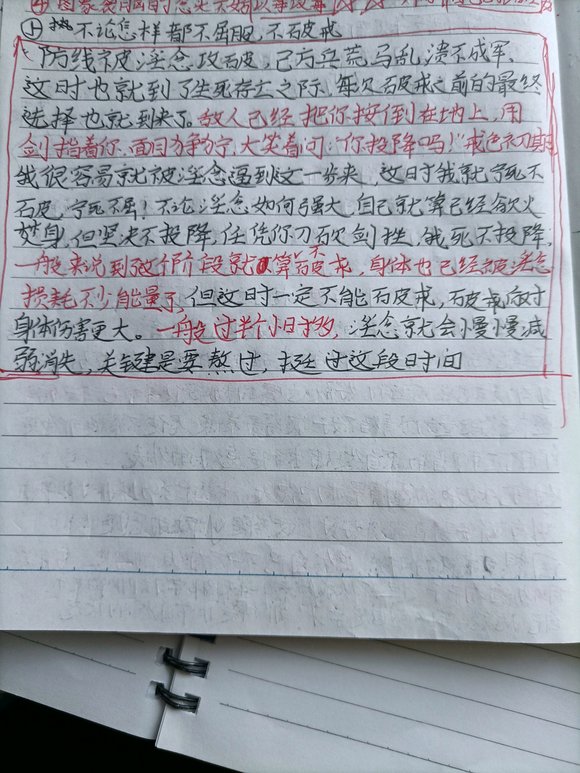 ① 熬 不论怎样都不屈服，不破戒
防线被淫念攻破，己方兵荒马乱溃不成军，
这时也就到了生死存亡之际，每次破戒之前的最终
选择也就到来了。敌人已经把你按倒在地上，用
剑指着你，面目狰狞，大笑着问："你投降吗！"戒色初期
我很容易就被淫念逼到这一步来，这时我就宁死不
破，宁死不屈！不论淫念如何强大，自己就算已经欲火
焚身，但坚决不投降，任凭你刀砍剑挫，我死不投降，
一般来说到这个阶段就算不破戒，身体也已经被淫念
损耗不少能量了，但这时一定不能破戒，破戒后对
身体伤害更大。一般过半个小时多，淫念就会慢慢减
弱消失，关键是要熬过，挺过这段时间